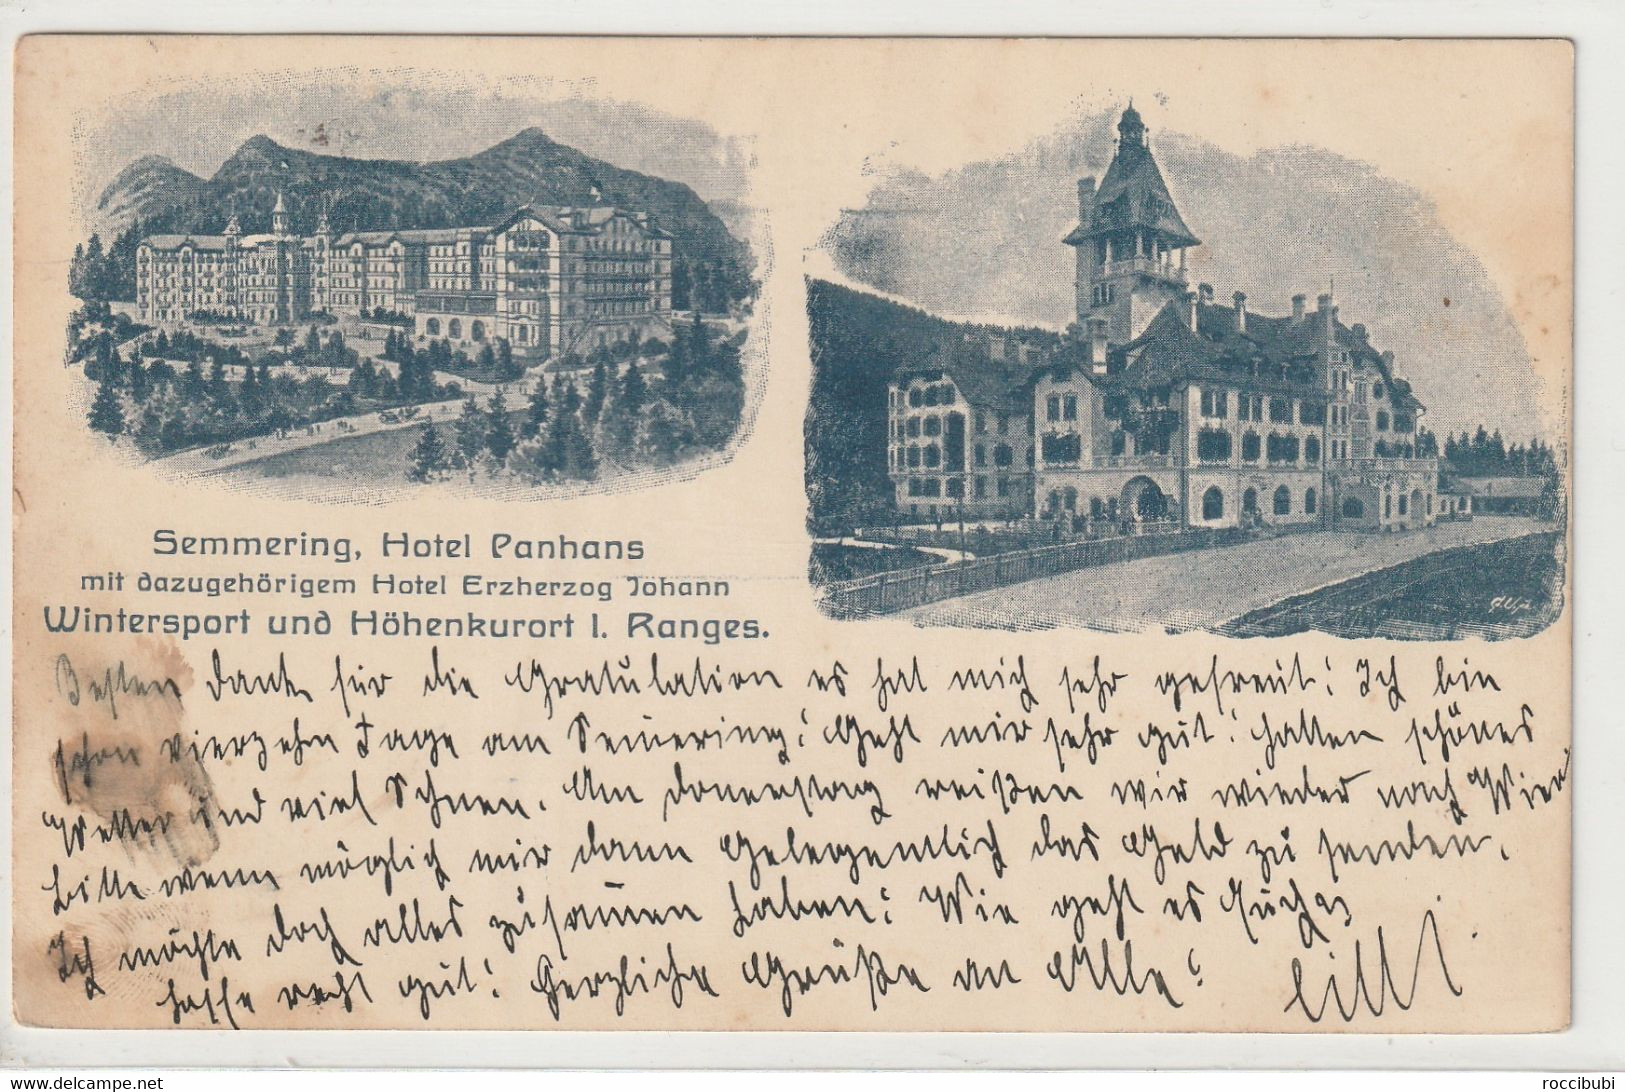 Semmering, Hotel Panhans
mit dazugehörigem Hotel Erzherzog Johann
Wintersport und Höhenkurort I. Ranges.
Besten Dank für die Gratulation es hat mich sehr gefreut! Ich bin
schon vierzehn Tage am Semmering! Geht mir sehr gut! hatten schönes
Wetter und viel Schnee. Am Donnerstag reißen wir wieder nach Wien
bitte wenn möglich mir dann gelegentlich das Geld zu senden.
Ich möchte doch alles zusammen haben! Wie geht es Euch
hoffe recht gut! Herzliche Grüße an Alle!
Cilli
roccibubi
www.delcampe.net